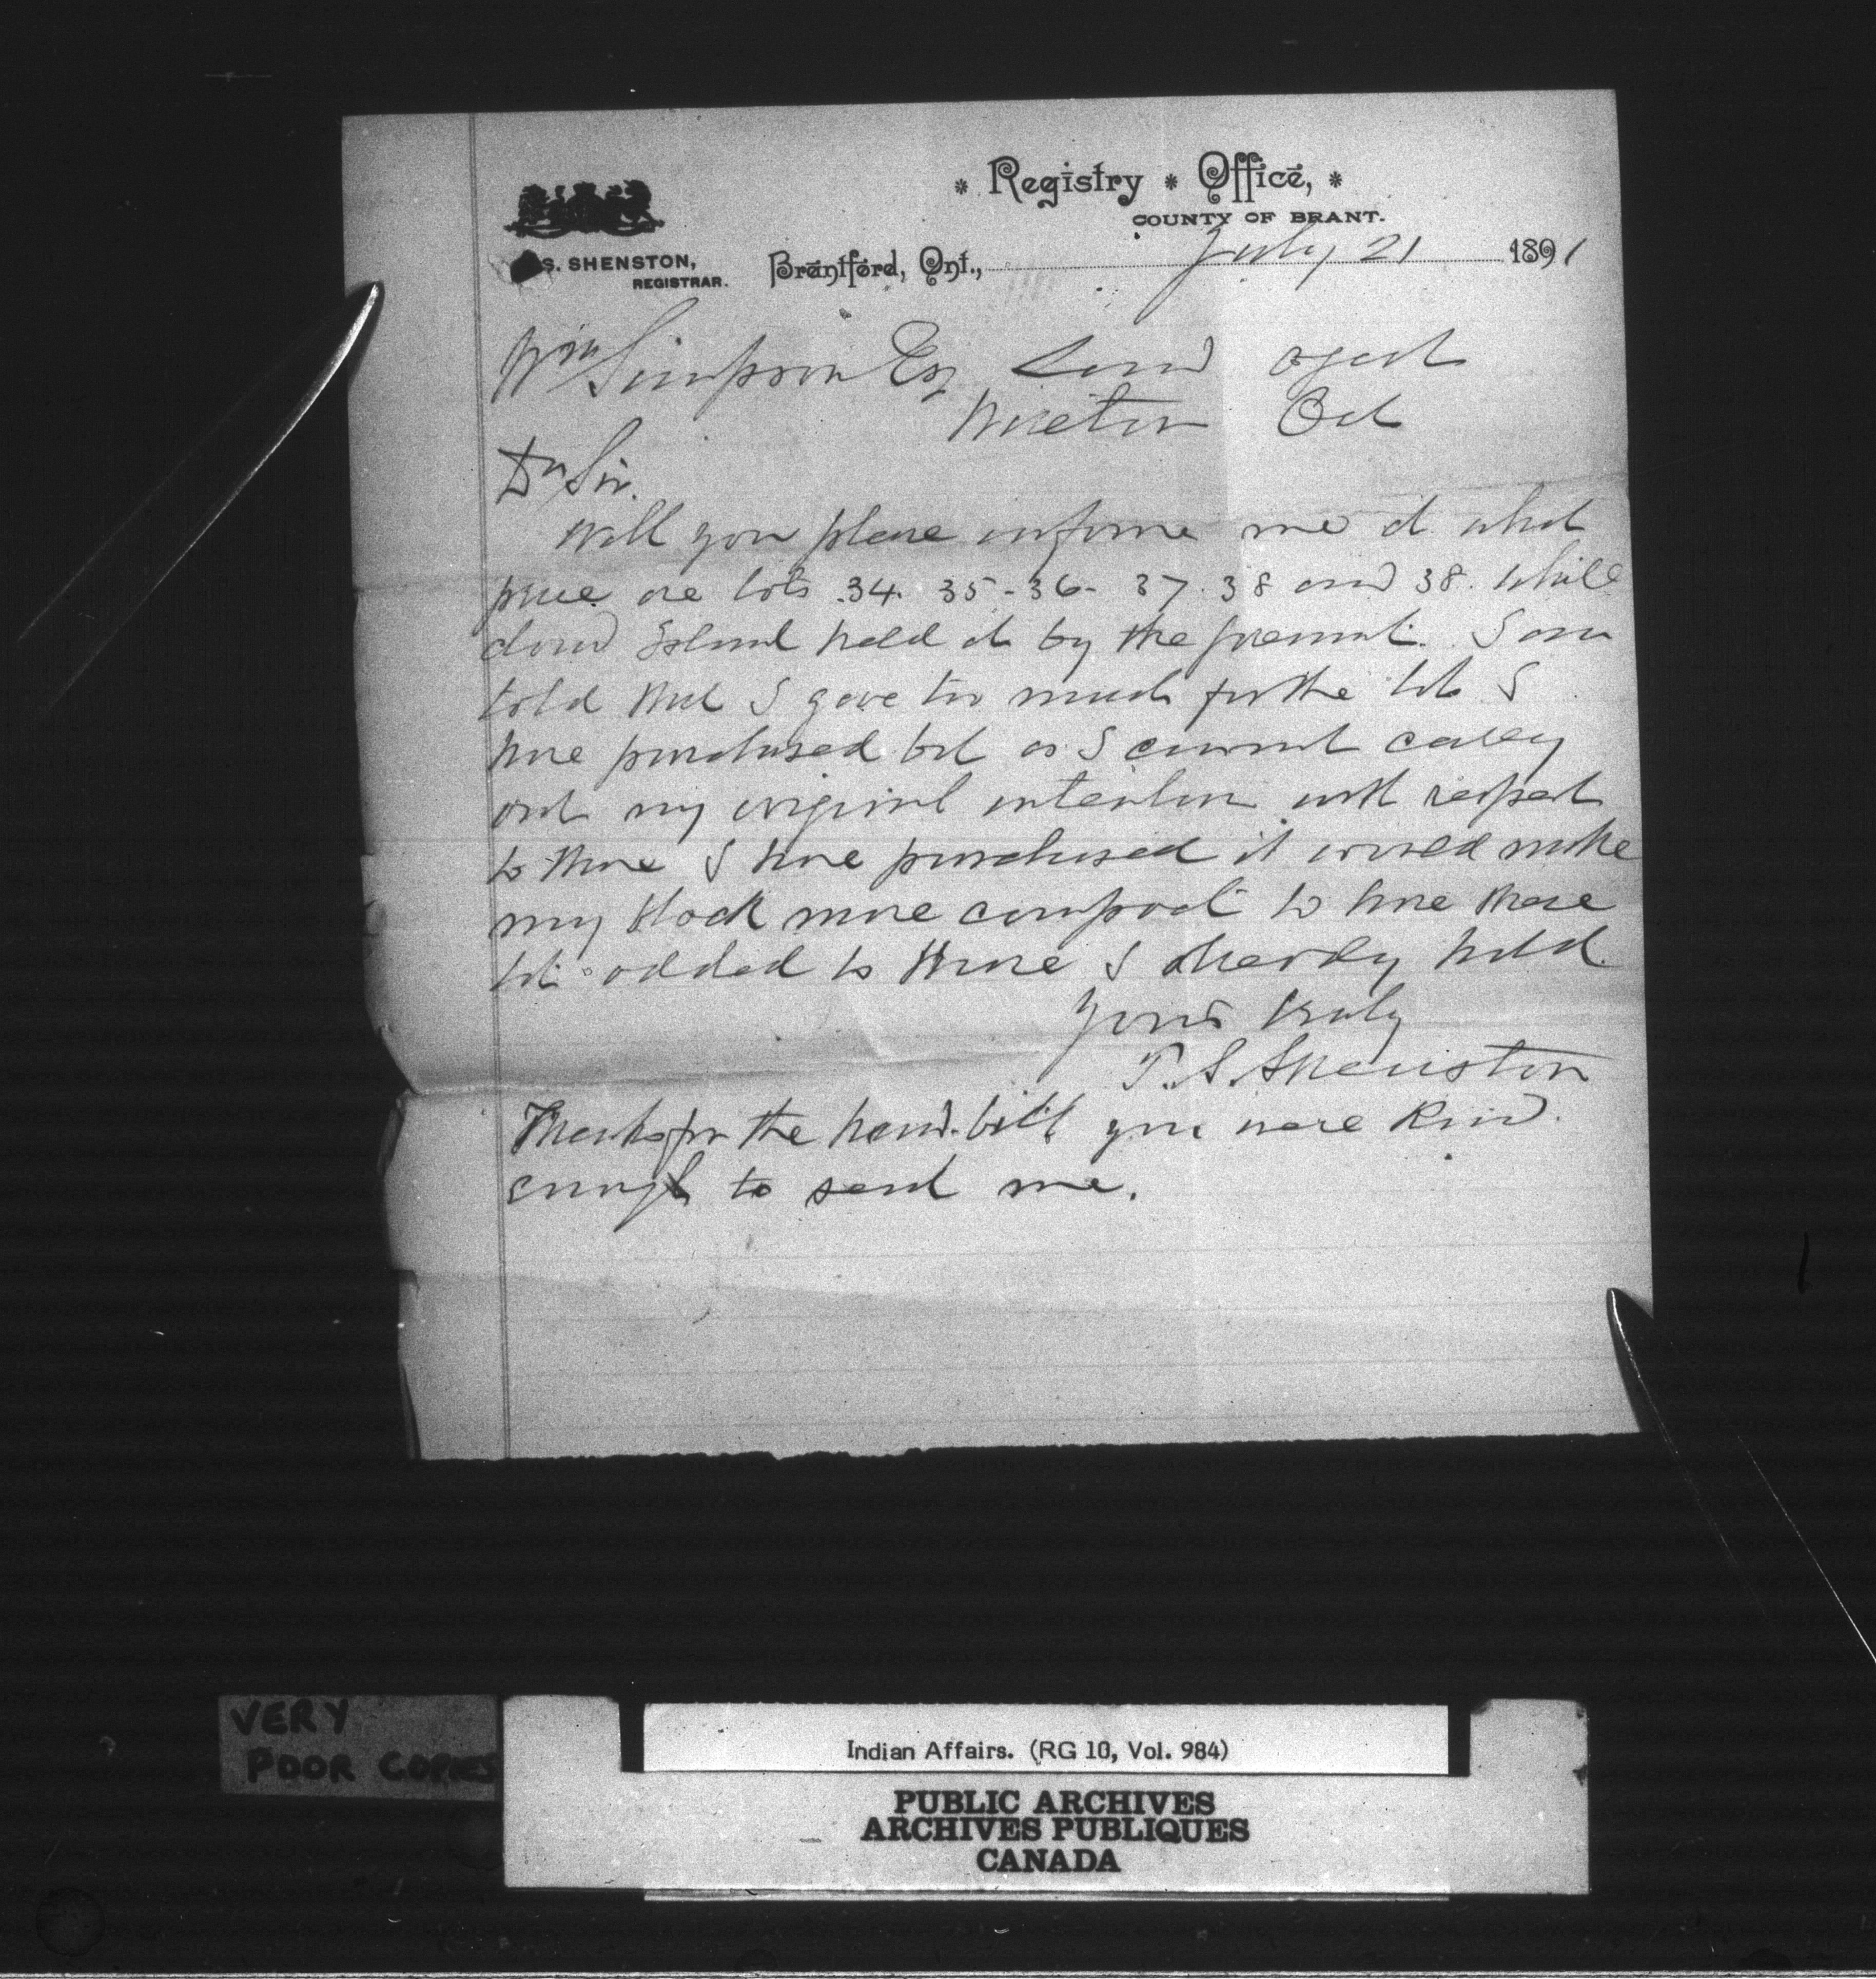 * Registry * Office, *
COUNTY OF BRANT.
S. SHENSTON,
REGISTRAR.
Brantford, Ont., July 21 1891
Wm Simpson Esq Land agent
Wiarton Ont
Dr Sir.
Will you please inform me at what
price are lots 34. 35-36- 37. 38 and 38. White
cloud Island held at by the 
I am
told that I gave too much for the lots I
have purchased but as I cannot carry
out my original intention with respect
to those I have purchased it would make
my block more compact to have these
lots added to those I already hold.
Yours truly
T. S. Shenston
Thanks for the hand-bill you were kind
enough to send me.
VERY
POOR COPIES
Indian Affairs. (RG 10, Vol. 984)
PUBLIC ARCHIVES
ARCHIVES PUBLIQUES
CANADA